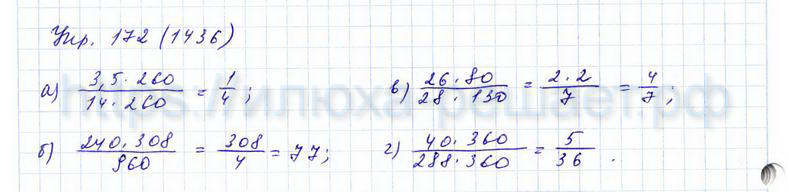 Упр. 172 (1436)
а) 3,5·260/14·260 = 1/4; в) 26·80/28·130 = 2·2/7 = 4/7;
б) 240·308/960 = 308/4 = 77; г) 40·360/288·360 = 5/36.
https://илюха-решает.рф